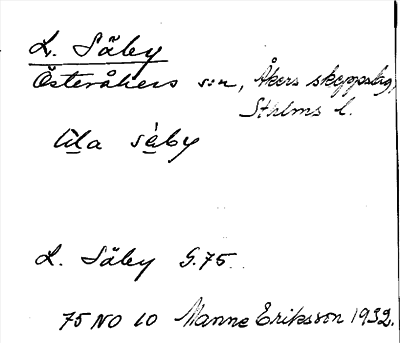 L. Säby
Österåkers s:n, Åkers skeppslag,
Sthlms l.
lilla säby
L. Säby G.75.
75 NO 10 Manne Eriksson 1932.